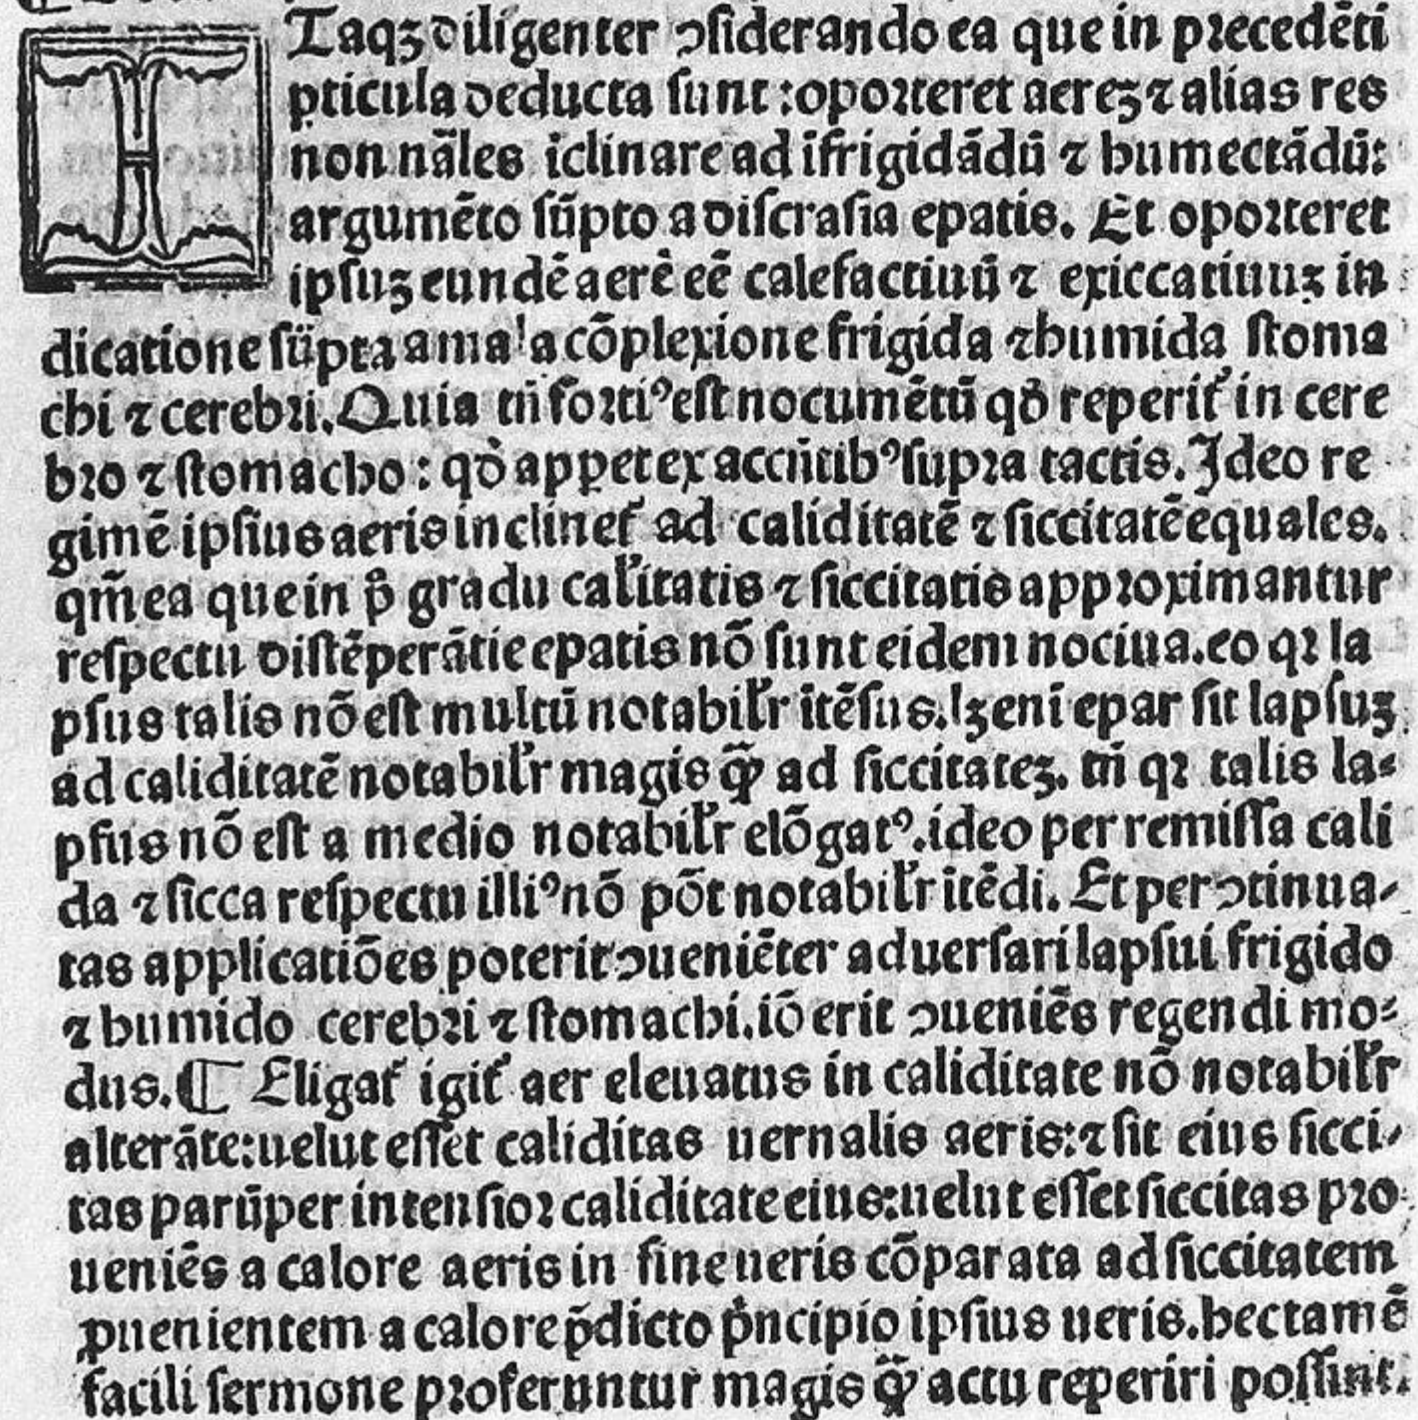 ITaqʒ diligenter ↄſiderando ea que in precedēti
ꝑticula deducta ſunt: oporteret aereʒ ⁊ alias res
non nãles īclinare ad īfrigidādū ⁊ humectādū:
argumēto ſūpto a diſcraſia epatis. Et oporteret
ipſuʒ eundē aerē eē calefactiuū ⁊ exiccatiuuʒ in
dicatione ſūpta a mala cōplexione frigida ⁊ humida ſtoma
chi ⁊ cerebri. Quia tñ fortiꝰ eſt nocumētū qđ reperit᷑ in cere
bro ⁊ ſtomacho: qđ apꝑet ex accñtibꝰ ſupra tactis. Ideo re
gimē ipſius aeris inclinet᷑ ad caliditatē ⁊ ſiccitatē equales.
qm̄ ea que in pͦ gradu cal'itatis ⁊ ſiccitatis approximantur
reſpectu diſtēperātie epatis nō ſunt eidem nociua. eo qꝛ la
pſus talis nō eſt multū notabil'r ītēſus. lʒ eni epar ſit lapſuʒ
ad caliditatē notabil'r magis ꝙ̃ ad ſiccitateʒ. tñ qꝛ talis la⸗
pſus nō eſt a medio notabil'r elōgatꝰ. ideo per remiſſa cali
da ⁊ ſicca reſpectu illiꝰ nō pōt notabil'r ītēdi. Et per ↄtinua⸗
tas applicatiōes poterit ↄueniēter aduerſari lapſui frigido
⁊ humido cerebri ⁊ ſtomachi. iō erit ↄueniēs regendi mo⸗
dus. ¶ Eligat᷑ igit᷑ aer eleuatus in caliditate nō notabil'r
alterāte: uelut eſſet caliditas uernalis aeris: ⁊ ſit eius ſicci⸗
tas parūper intenſior caliditate eius: uelut eſſet ſiccitas pro
ueniēs a calore aeris in fine ueris cōparata ad ſiccitatem
ꝓuenientem a calore p̄dicto pͥncipio ipſius ueris. hec tamē
facili ſermone proferuntur magis ꝙ̃ actu reperiri poſſint.